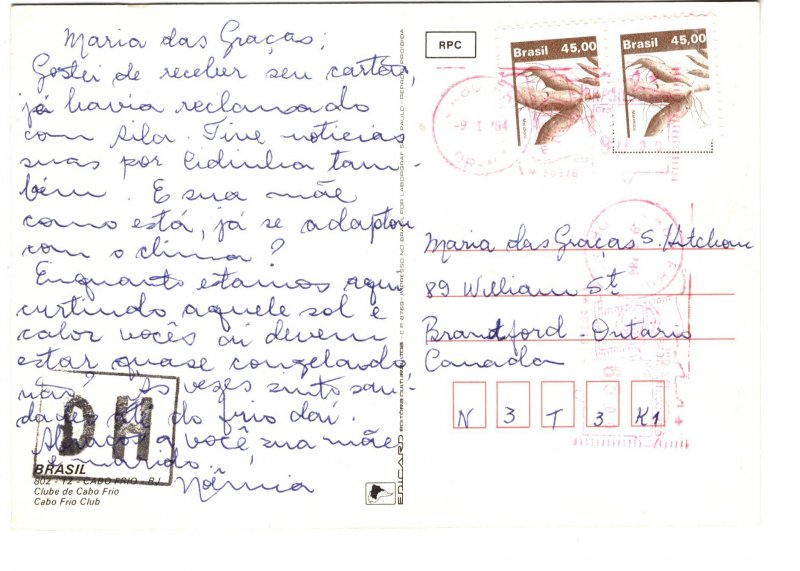 Maria das Graças;
Gostei de receber seu cartão,
já havia reclamado
com Sila. Tive noticias
suas por Cidinha tam-
bém. E sua mãe
como está, já se adaptou
com o clima?
Enquanto estamos aqui
curtindo aquele sol e
calor vocês aí devem
estar quase congelando
não? As vezes sinto sau-
dades até do frio daí.
Abraços a você sua mãe
e marido,
DH
BRASIL
802 - 12 - CABO FRIO - RJ
Clube de Cabo Frio
Cabo Frio Club
EDICARD
RPC
Brasil 45,00
Brasil 45,00
-9 I
Maria das Graças S. Hitchon
89 William St
Brantford - Ontario
Canada
N 3 T 3 K1